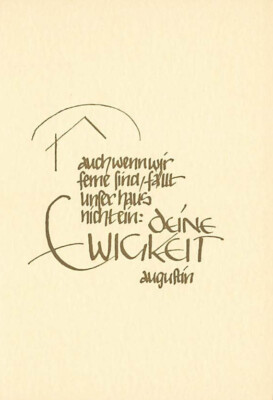 auch wenn wir
ferne sind, fällt
unser haus
nicht ein: deine
EWIGKEIT
augustin